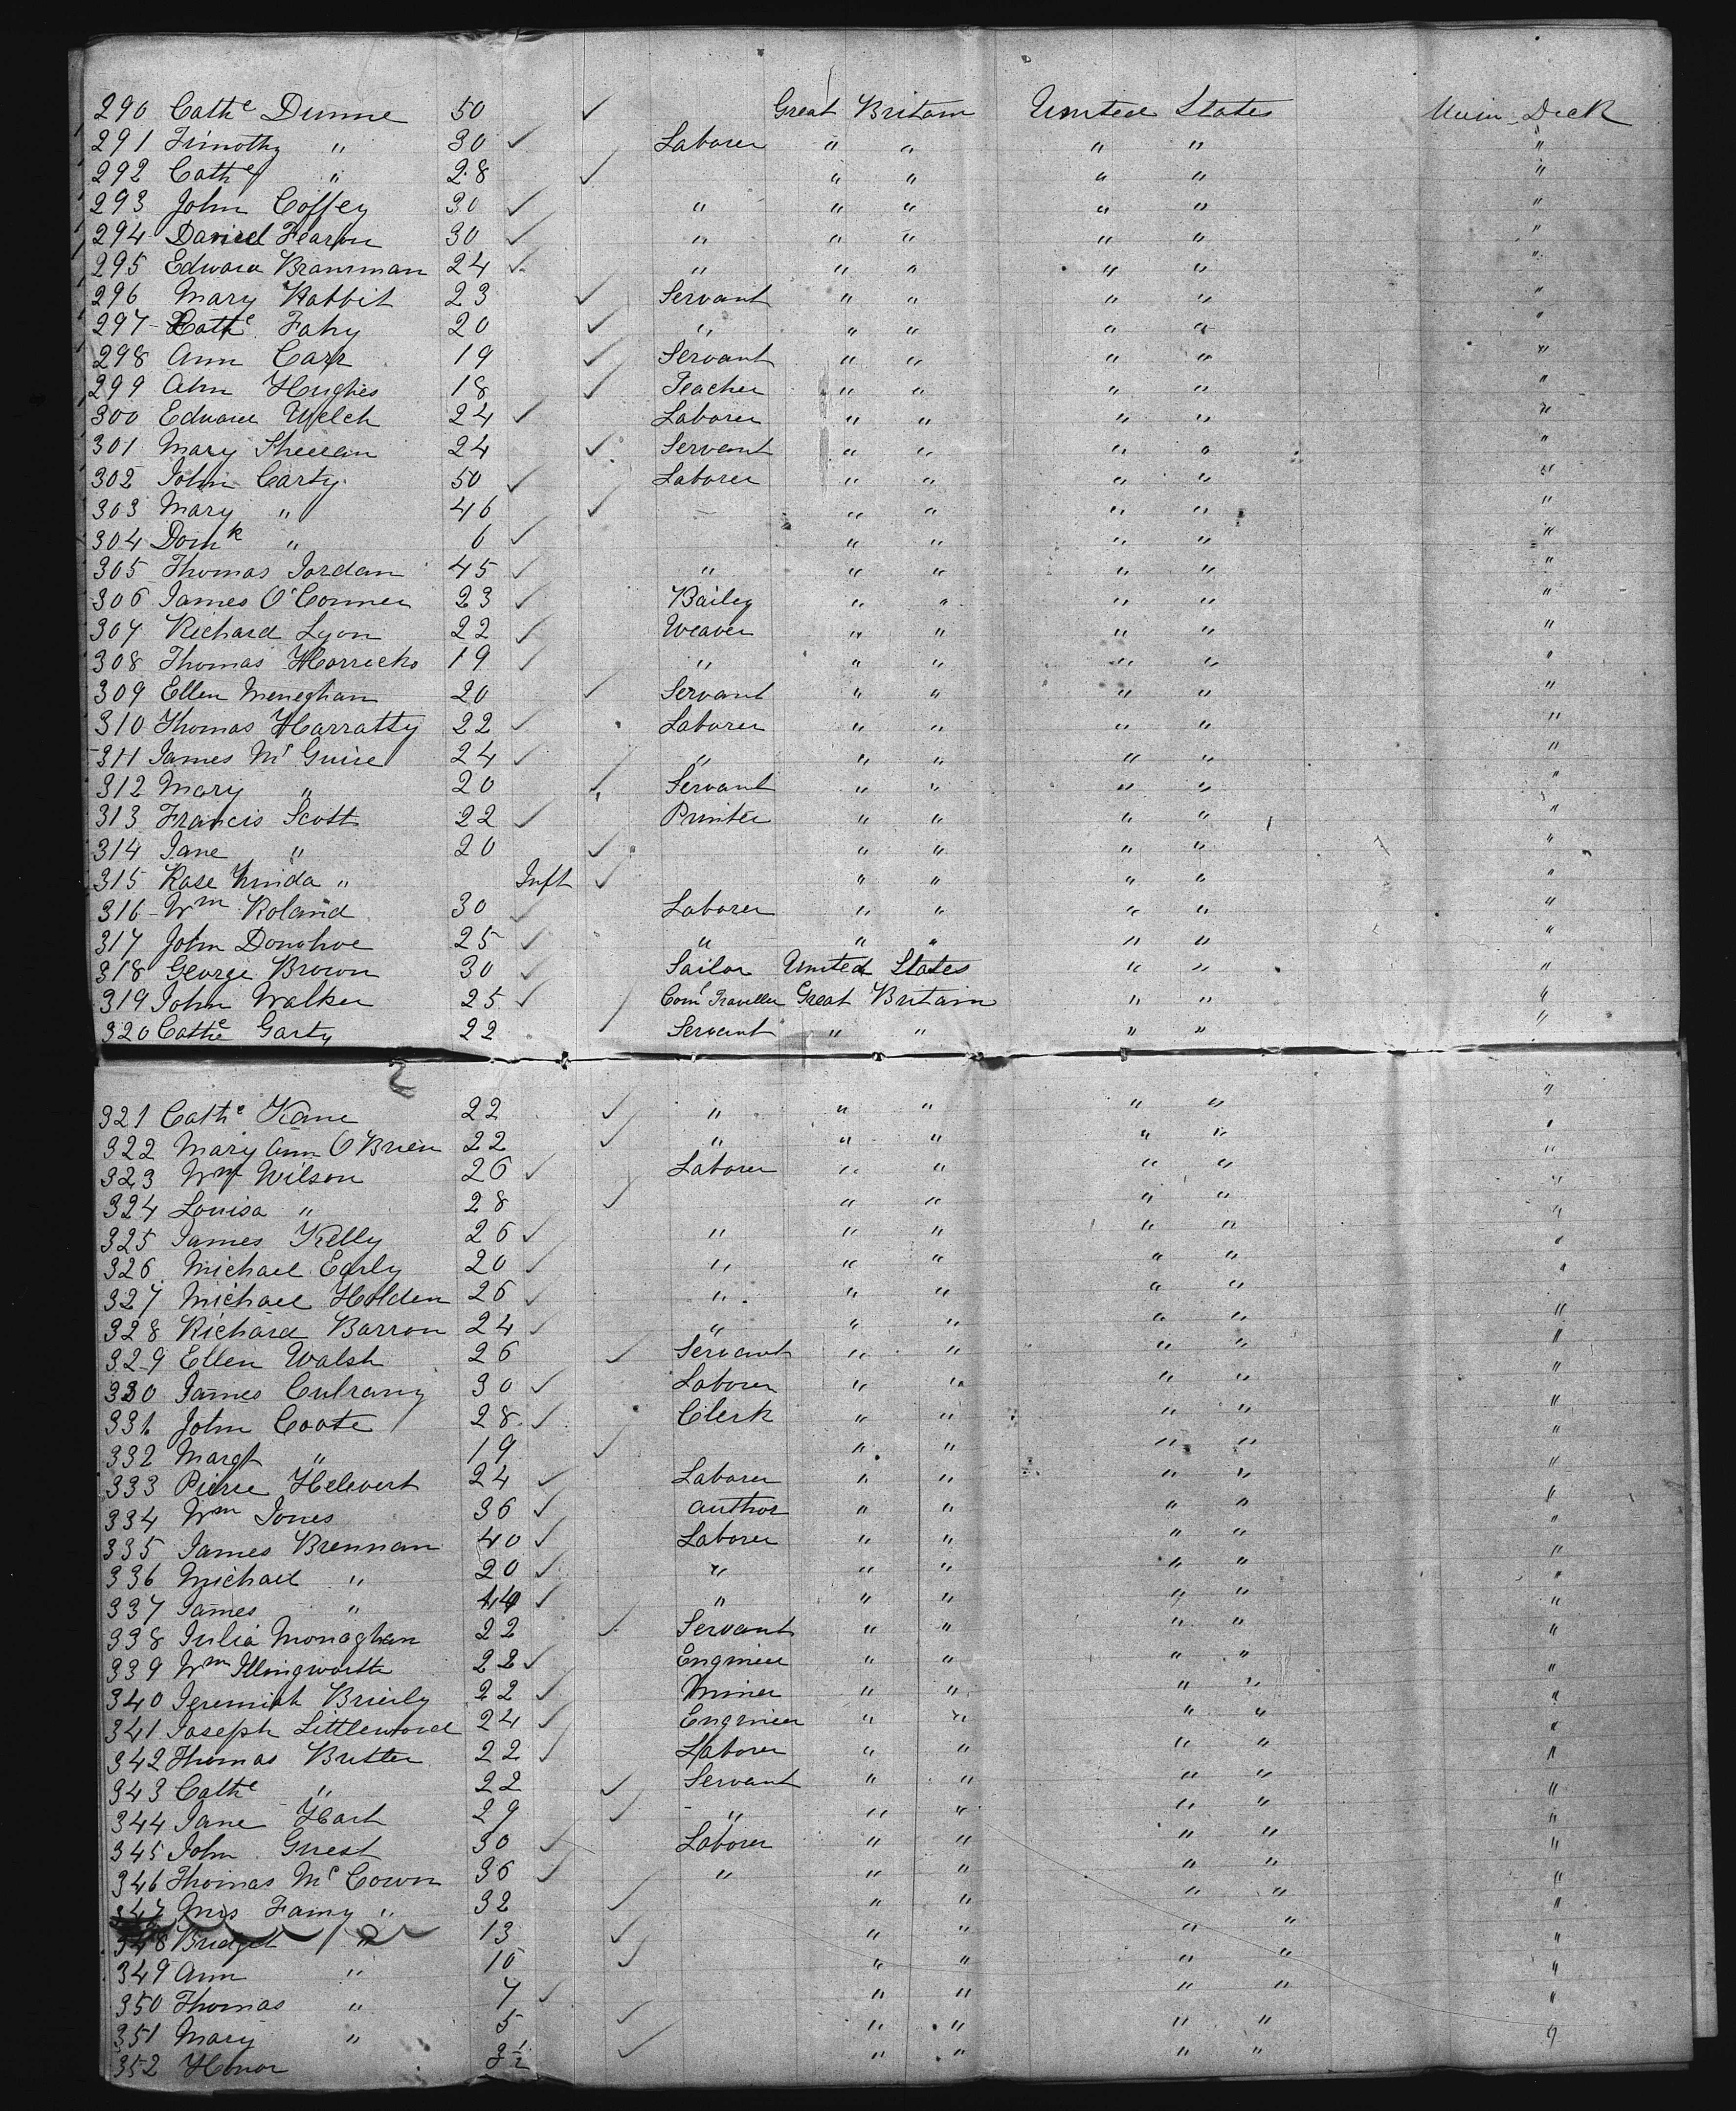 290 Cathe Dunne 50 ✓ Great Britain United States Main Deck
291 Timothy " 30 ✓ Laborer " " " " "
292 Cathe " 28 ✓ " " " " "
293 John Coffey 30 ✓ " " " " " "
294 Daniel Fearon 30 ✓ " " " " " "
295 Edward 24 ✓ " " " " " "
296 Mary Rabbit 23 ✓ Servant " " " " "
297 Cathe Fahy 20 ✓ " " " " " "
298 Ann Carr 19 ✓ Servant " " " " "
299 Ann Hughes 18 ✓ Teacher " " " " "
300 Edward Welch 24 ✓ Laborer " " " " "
301 Mary Sheean 24 ✓ Servant " " " " "
302 John Carty 50 ✓ Laborer " " " " "
303 Mary " 46 ✓ " " " " "
304 Domk " 6 ✓ " " " " "
305 Thomas Jordan 45 ✓ " " " " " "
306 James O'Conner 23 ✓ Bailey " " " " "
307 Richard Lyon 22 ✓ Weaver " " " " "
308 Thomas Horricks 19 ✓ " " " " " "
309 Ellen Meneghan 20 ✓ Servant " " " " "
310 Thomas Harratty 22 ✓ Laborer " " " " "
311 James Mc Guire 24 ✓ " " " " " "
312 Mary " 20 ✓ Servant " " " " "
313 Francis Scott 22 ✓ Printer " " " " "
314 Jane " 20 ✓ " " " " "
315 Rose " Inft ✓ " " " " "
316 Wm Roland 30 ✓ Laborer " " " " "
317 John Donohoe 25 ✓ " " " " " "
318 George Brown 30 ✓ Sailor United States " " "
319 John Walker 25 ✓ Coml Traveller Great Britain " " "
320 Cathe Garty 22 ✓ Servant " " " " "
2
321 Cathe Kane 22 ✓ " " " " " "
322 Mary Ann O'Brien 22 ✓ " " " " " "
323 Wm Wilson 26 ✓ Laborer " " " " "
324 Louisa " 28 ✓ " " " " "
325 James Kelly 26 ✓ " " " " " "
326 Michael Early 20 ✓ " " " " " "
327 Michael Holden 26 ✓ " " " " " "
328 Richard Barron 24 ✓ " " " " " "
329 Ellen Walsh 26 ✓ Servant " " " " "
330 James 30 ✓ Laborer " " " " "
331 John Coate 28 ✓ Clerk " " " " "
332 Margt " 19 ✓ " " " " "
333 Pierse Helevert 24 ✓ Laborer " " " " "
334 Wm Jones 36 ✓ Author " " " " "
335 James Brennan 40 ✓ Laborer " " " " "
336 Michael " 20 ✓ " " " " " "
337 James " ✓ " " " " " "
338 Julia Monaghan 22 ✓ Servant " " " " "
339 Wm Illingworth 22 ✓ Engineer " " " " "
340 Jeremiah Brierly 22 ✓ Miner " " " " "
341 Joseph Littlewood 24 ✓ Engineer " " " " "
342 Thomas Butter 22 ✓ Laborer " " " " "
343 Cathe " 22 ✓ Servant " " " " "
344 Jane Hart 29 ✓ " " " " " "
345 John Guest 30 ✓ Laborer " " " " "
346 Thomas Mc Cown 36 ✓ " " " " " "
347 Mrs Fanny " 32 ✓ " " " " "
348 Bridget " 13 ✓ " " " " "
349 Ann " 10 ✓ " " " " "
350 Thomas " 7 ✓ " " " " "
351 Mary " 5 ✓ " " " " "
352 Honor 3½ ✓ " " " "